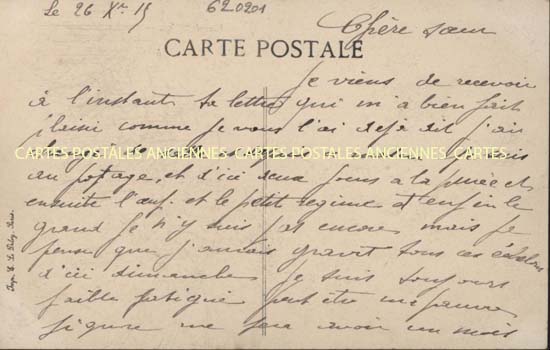 Le 26 Xre 15 620201
Chère sœur
CARTE POSTALE
Je viens de recevoir
à l'instant ta lettre qui m'a bien fait
plaisir comme je vous l'ai déjà dit j'ai
CARTES POSTALES ANCIENNES CARTES POSTALES ANCIENNES CARTES
au potage, et d'ici deux jours a la purée et
ensuite l'œuf. et le petit regime et enfin le
grand je n'y suis pas encore mais je
pense que j'aurais gravit tous ces échelons
d'ici dimanche je suis toujours
faible fatigué peut être ma pauvre
figure me fera avoir un mois
Imp. E. Le Deley, Paris.